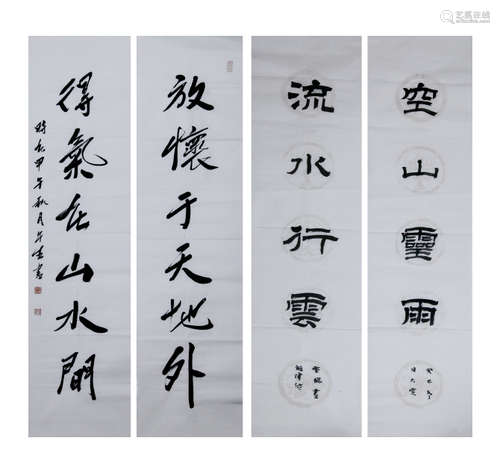 空山靈雨
流水行雲
放懷于天地外
得氣在山水間
時在甲午秋月